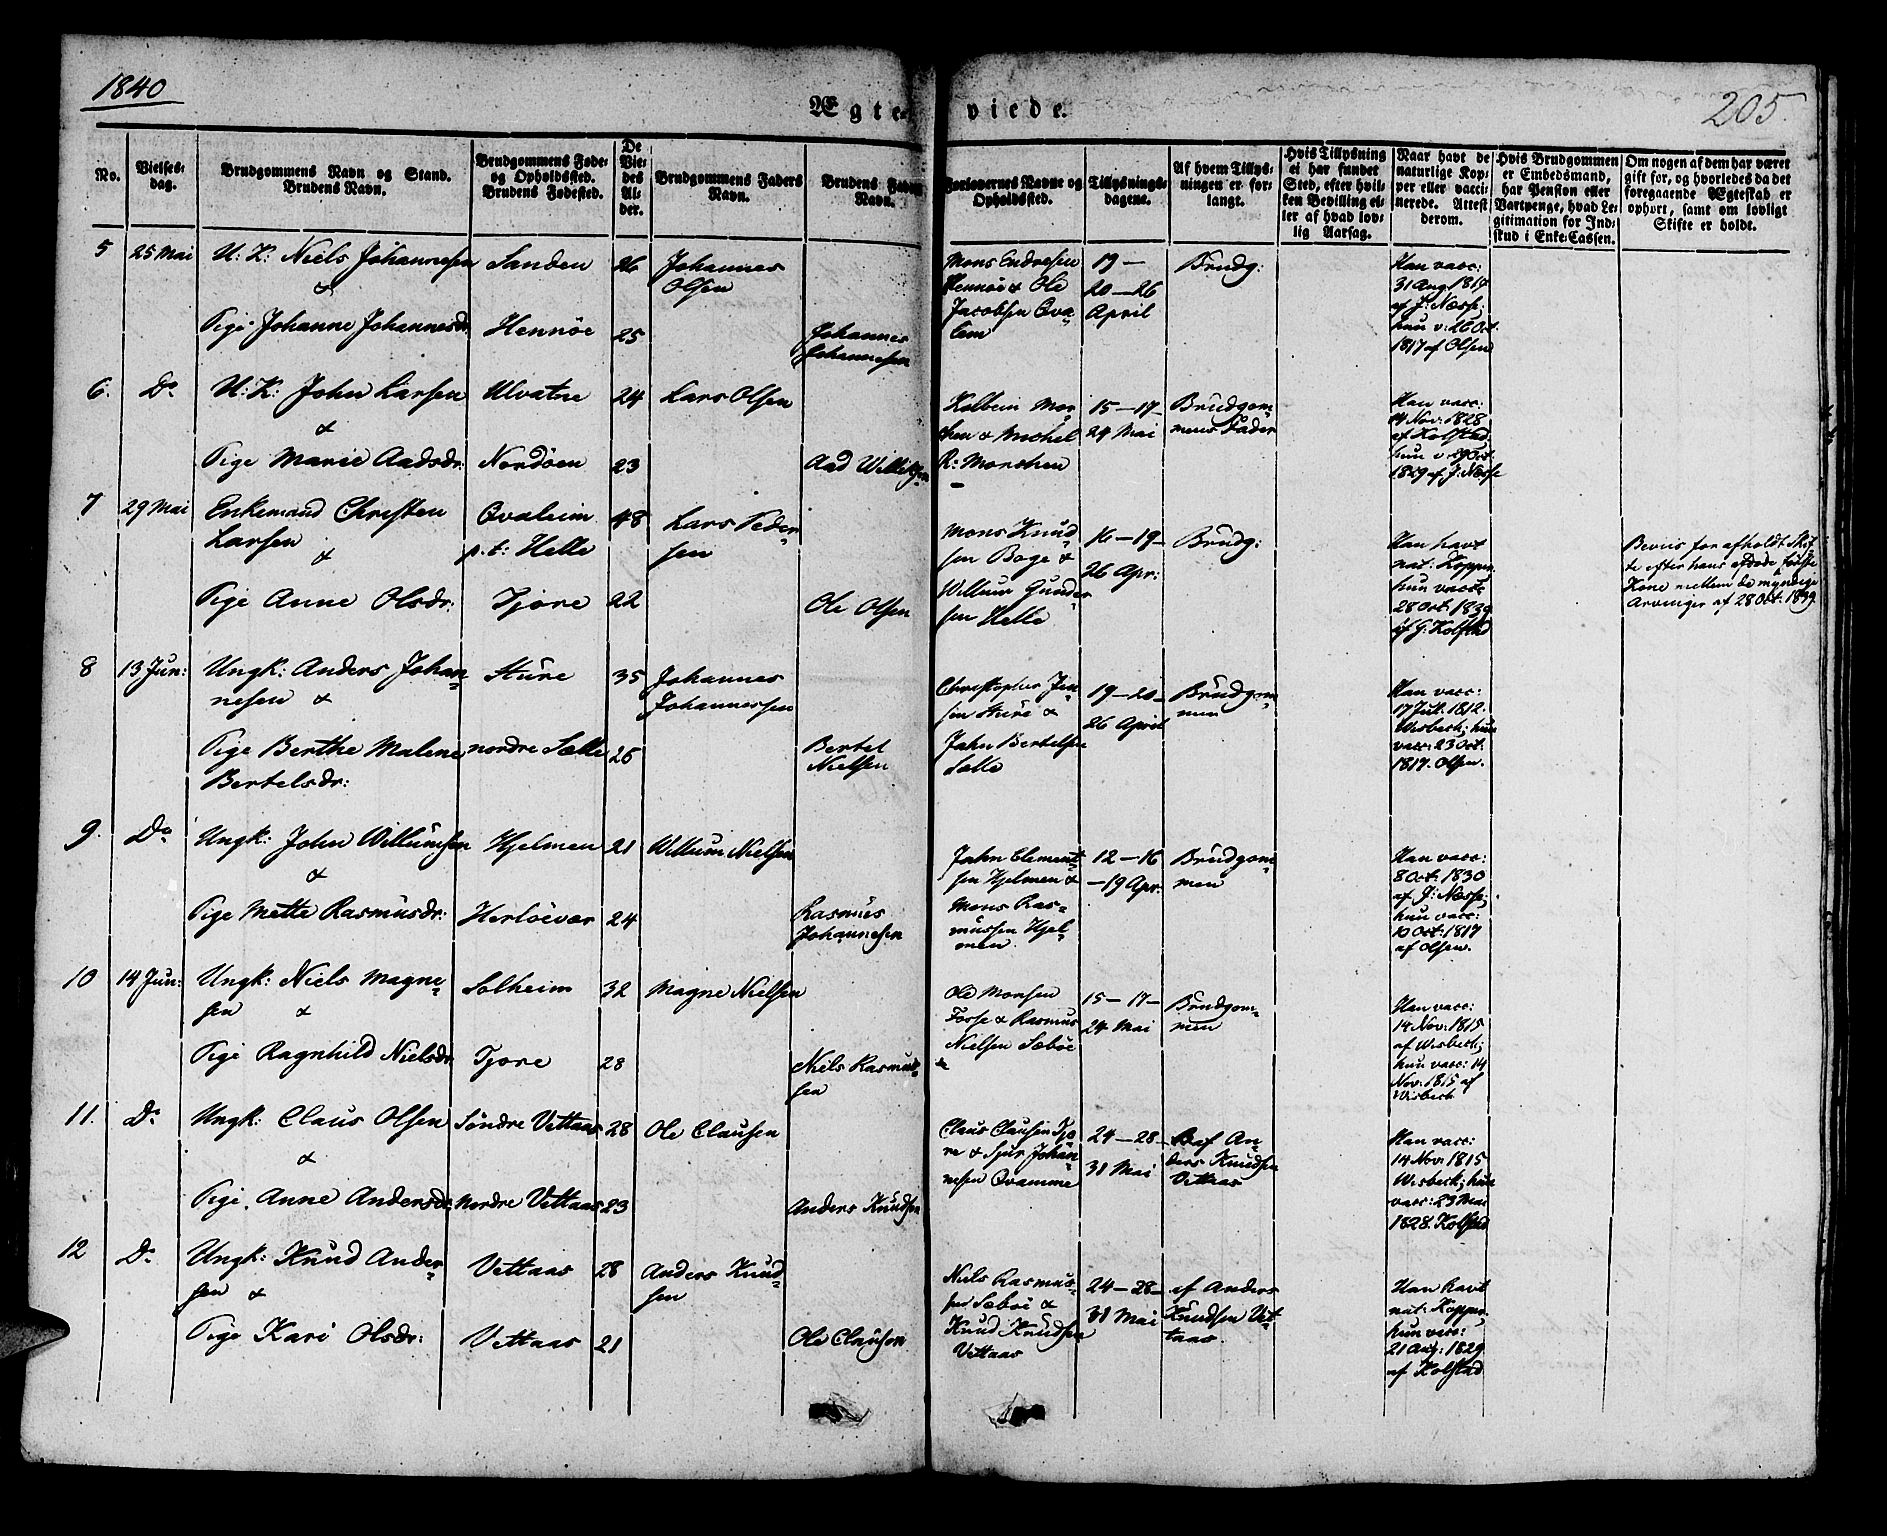 1840
Ægteviede.
205.
No.
Vielses-
dag.
Brudgommens Navn og Stand.
Brudens Navn.
Brudgommens Føde-
og Opholdssted.
Brudens Fødested.
De
Vie-
des
Al-
der.
Brudgommens Faders
Navn.
Brudens Faders
Navn.
Forlovernes Navne og
Opholdssted.
Tillysnings-
dagene.
Af hvem Tillys-
ningen er for-
langt.
Hvis Tillysning
ei har fundet
Sted, efter hvil-
ken Bevilling el-
ler af hvad lov-
lig Aarsag.
Naar havt de
naturlige Kop-
per eller vacci-
nerede. Attest
derom.
Hvis Brudgommen
er Embedsmand,
har Pension eller
Vartpenge, hvad Le-
gitimation for Ind-
skud i Enke-Cassen.
Om nogen af dem har været
gift for, og hvorledes da det
foregaaende Ægteskab er
ophørt, samt om lovligt
Skifte er holdt.
5
25 Mai
U: K: Niels Johannesen
&
Pige Johanne Johannesdr.
Sanden
Hennöe
26
25
Johannes
Olsen
Johannes
Johannesen
Mons Endresen
Hennöe & Ole
Jacobsen Qva-
lem
19 —
20 — 26
April
Brudg:
Han vacc:
31 Aug. 1819
af J: Næsse,
hun v: 26 Oct.
1817 af Olsen
6.
Do
U: K: John Larsen
&
Pige Marie Aadsdr.
Ulvatne
Nordöen
24
23
Lars Olsen
Aad Willumsen
Kolbein Mon-
sen & Michel
R: Monsen
15 — 17 —
24 Mai
Brudgom-
mens Fader
Han vacc:
4 Nov: 1828
af Kolstad
hun v: 19 Oct.
1819 af J: Næsse
7
29 Mai
Enkemand Christen
Larsen
&
Pige Anne Olsdr:
Qvaleim
p.t: Helle
Tjore
48
22
Lars Peder-
sen
Ole Olsen
Mons Knud-
sen Boge &
Willum Gunder-
sen Helle
16 — 19 —
26 Apr:
Brudg:
Han havt
nat: Kopper,
hun vacc:
28 Oct: 1839
af G: Kolstad
Beviis for afholdt Skif-
te efter hans afdøde første
Kone mellem de myndige
Arvinger af 28 Oct: 1839.
8
13 Jun:
Ungk: Anders Johan-
nesen &
Pige Berthe Malene
Bertelsdr:
Sture
nordre Sælle
35
25
Johannes
Johannessen
Bertel
Nielsen
Christopher Jen-
sen Sture &
John Bertelsen
Sælle
19 — 20 —
26 April
Brudgom-
men
Han vacc:
17 Jul. 1812.
Wisbech; hun
vacc: 23 Oct.
1817. Olsen.
9.
Do
Ungk: John Willumsen
&
Pige Mette Rasmusdr:
Hjelmen
Herlöevær
21
24
Willum Nielsen
Rasmus
Johannesen
John Clement-
sen Hjelmen &
Mons Ras-
mussen Hjel-
men
12 — 16
— 19 Apr:
Brudgom-
men
Han vacc:
8 Oct: 1830
af J: Næsse;
hun vacc:
10 Oct: 1817
af Olsen.
10
14 Jun:
Ungk: Niels Magne-
sen &
Pige Ragnhild Nielsdr.
Solheim
Tjore
32
28
Magne Nielsen
Niels Rasmus-
sen
Ole Monsen
Fosse & Rasmus
Nielsen Sæböe
15 — 17 —
24 Mai
Brudgom-
men
Han vacc:
14 Nov: 1815
af Wisbech;
hun vacc: 14
Nov: 1815 af
Wisbech
11.
Do
Ungk: Claus Olsen
&
Pige Anne Andersdr:
Söndre Vettaas
Nordre Vettaas
28
23
Ole Clausen
Anders Knudsen
Claus Clausen Tjo-
re & Sjur Johan-
nesen Qvamme
24 — 28 —
31 Mai
af An-
ders Knudsen
Vettaas
Han vacc:
14 Nov: 1815
Wisbech; hun
vacc: 23 Mai
1828. Kolstad
12
Do
Ungk: Knud Ander-
sen &
Pige Kari Olsdr:
Vettaas
Vettaas
28
21
Anders Knud-
sen
Ole Clausen
Niels Rasmus-
sen Sæböe &
Knud Knudsen
Vettaas
24 — 28 —
31 Mai
af Anders
Knudsen Vet-
taas
Han havt
nat: Kopper,
hun vacc:
21 Aug: 1829
af Kolstad